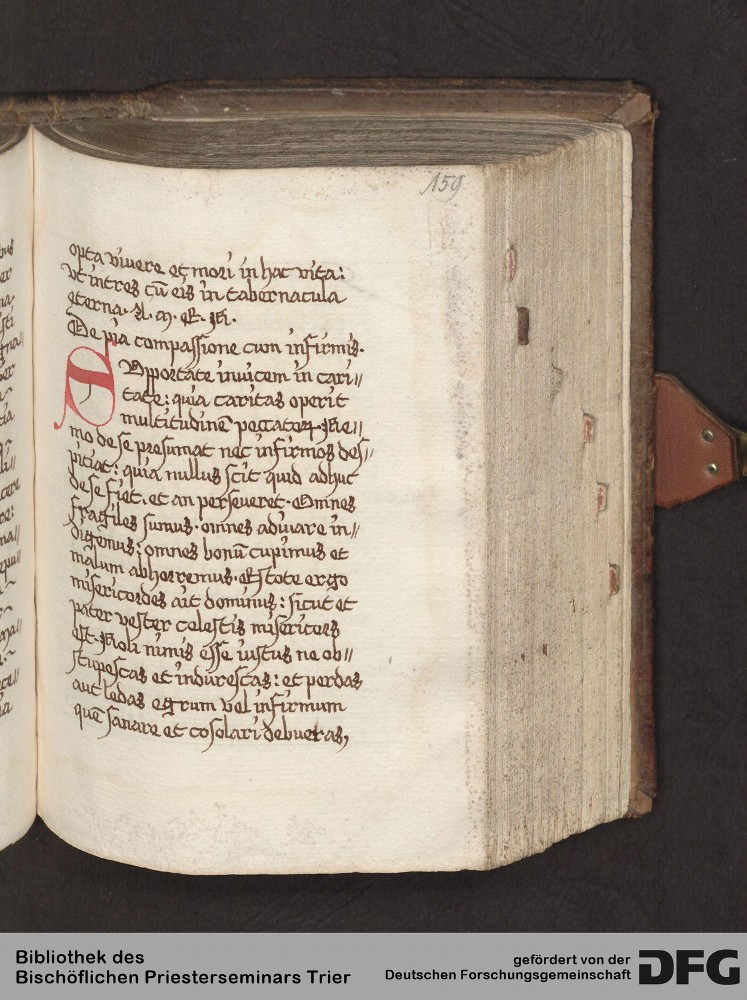 159
opta vivere et mori in hac vita:
vt intres cū eis in tabernacula
eterna. A. M. E. N.
De pia compassione cum infirmis.
Supportate inuicem in cari//
tate: quia caritas operit
multitudinē peccatoꝝ. Ne//
mo de se presumat nec infirmos des//
piciat: quia nullus scit quid adhuc
de se fiet. et an perseueret. Omnes
fragiles sumus. omnes adiuuare in//
digemus: omnes bonū cupimus et
malum abhorremus. Estote ergo
misericordes ait dominus: sicut et
pater vester celestis misericors
est. Noli nimis esse iustus ne ob//
stupescas et indurescas: et perdas
aut ledas egrum vel infirmum
quē sanare et cōsolari debueras,
Bibliothek des
Bischöflichen Priesterseminars Trier
gefördert von der
Deutschen Forschungsgemeinschaft
DFG